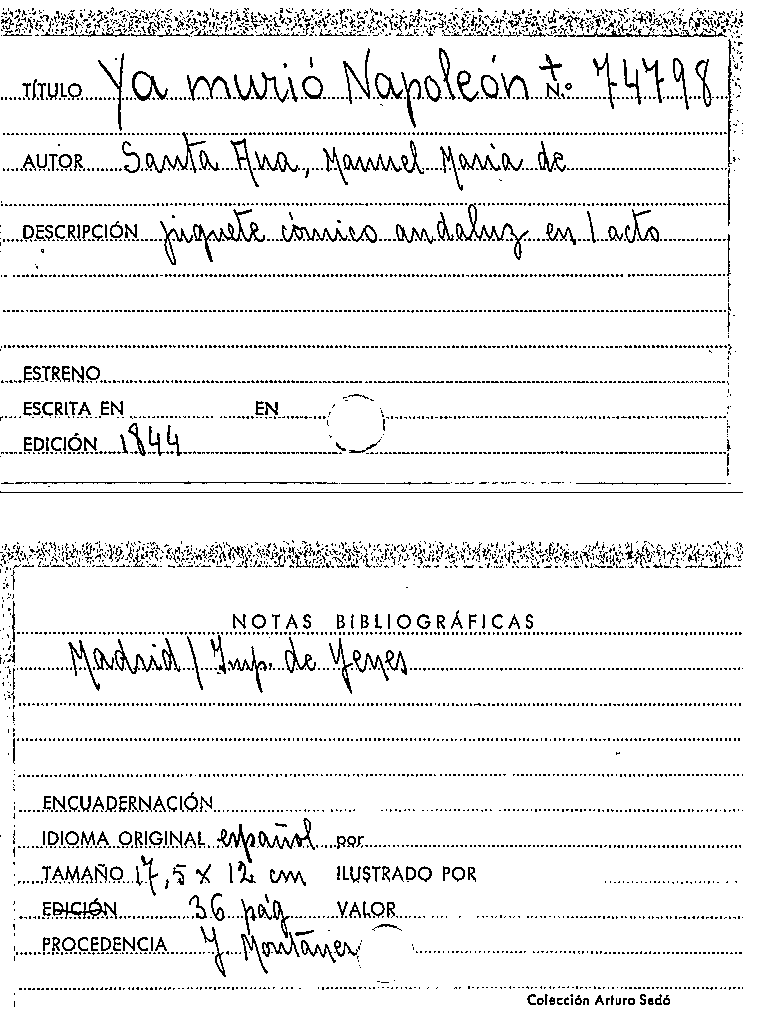 TÍTULO Ya murió Napoleón + N.º 74798
AUTOR Santa Ana, Manuel Maria de
DESCRIPCIÓN juguete cómico andaluz en 1 acto
ESTRENO
ESCRITA EN EN
EDICIÓN 1844
NOTAS BIBLIOGRÁFICAS
Madrid / Imp. de Yenes
ENCUADERNACIÓN
IDIOMA ORIGINAL español por
TAMAÑO 17,5 x 12 cm ILUSTRADO POR
EDICIÓN 36 pág VALOR
PROCEDENCIA y Montaner
Colección Arturo Sedó